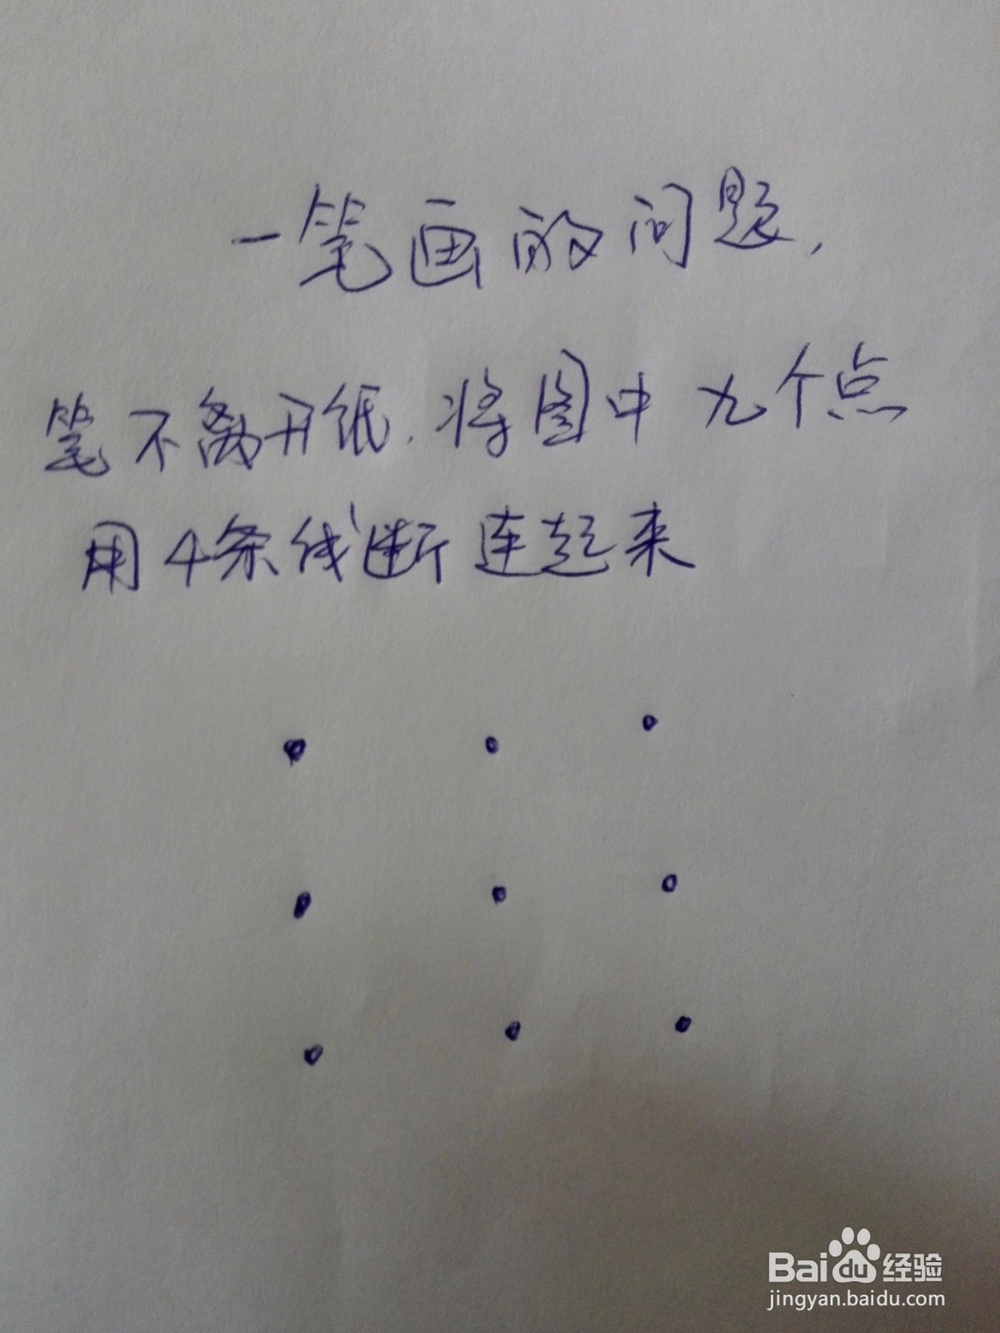 一笔画的问题,
笔不离开纸.将图中九个点
用4条线断连起来
Baidu经验
jingyan.baidu.com